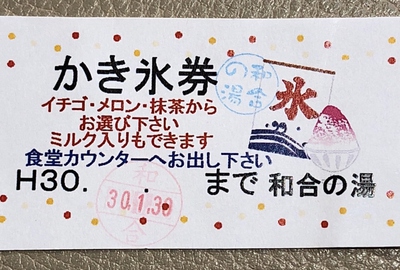 かき氷券
和合の湯
氷
イチゴ・メロン・抹茶から
お選び下さい
ミルク入りもできます
食堂カウンターへお出し下さい
H30. . まで 和合の湯
和
30.1.30
合